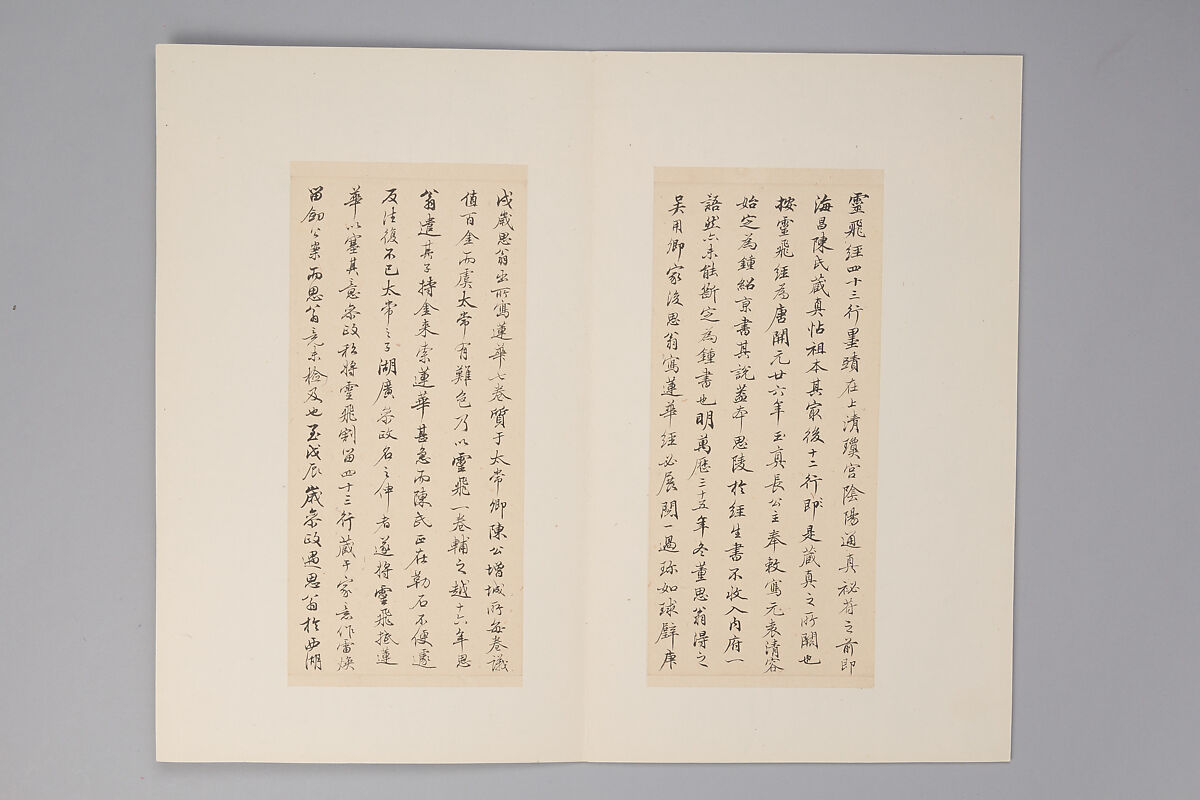 靈飛經四十三行墨蹟在上清瓊宮陰陽通真祕符之前即
海昌陳氏藏真帖祖本其家後十二行即是藏真之所闕也
按靈飛經爲唐開元廿六年玉真長公主奉敕寫元袁清容
始定為鍾紹京書其說蓋本思陵於經生書不收入内府一
語然亦未能斷定為鍾書也明萬曆三十五年冬董思翁得之
吴用卿家後思翁寫蓮華經必展閱一過珎如球璧庚
戌歲思翁出所寫蓮華七卷質于太常卿陳公增城所每卷議
值百金而虞太常有難色乃以靈飛一卷輔之越十六年思
翁遣其子持金来索蓮華甚急而陳氏正在勒石不便遽
反往復不已太常之子湖廣叅政名之伸者遂將靈飛抵蓮
華以塞其意叅政私將靈飛割留四十三行藏于家意作雷煥
留劒公案而思翁竟未檢及也至戊辰歲叅政遇思翁於西湖